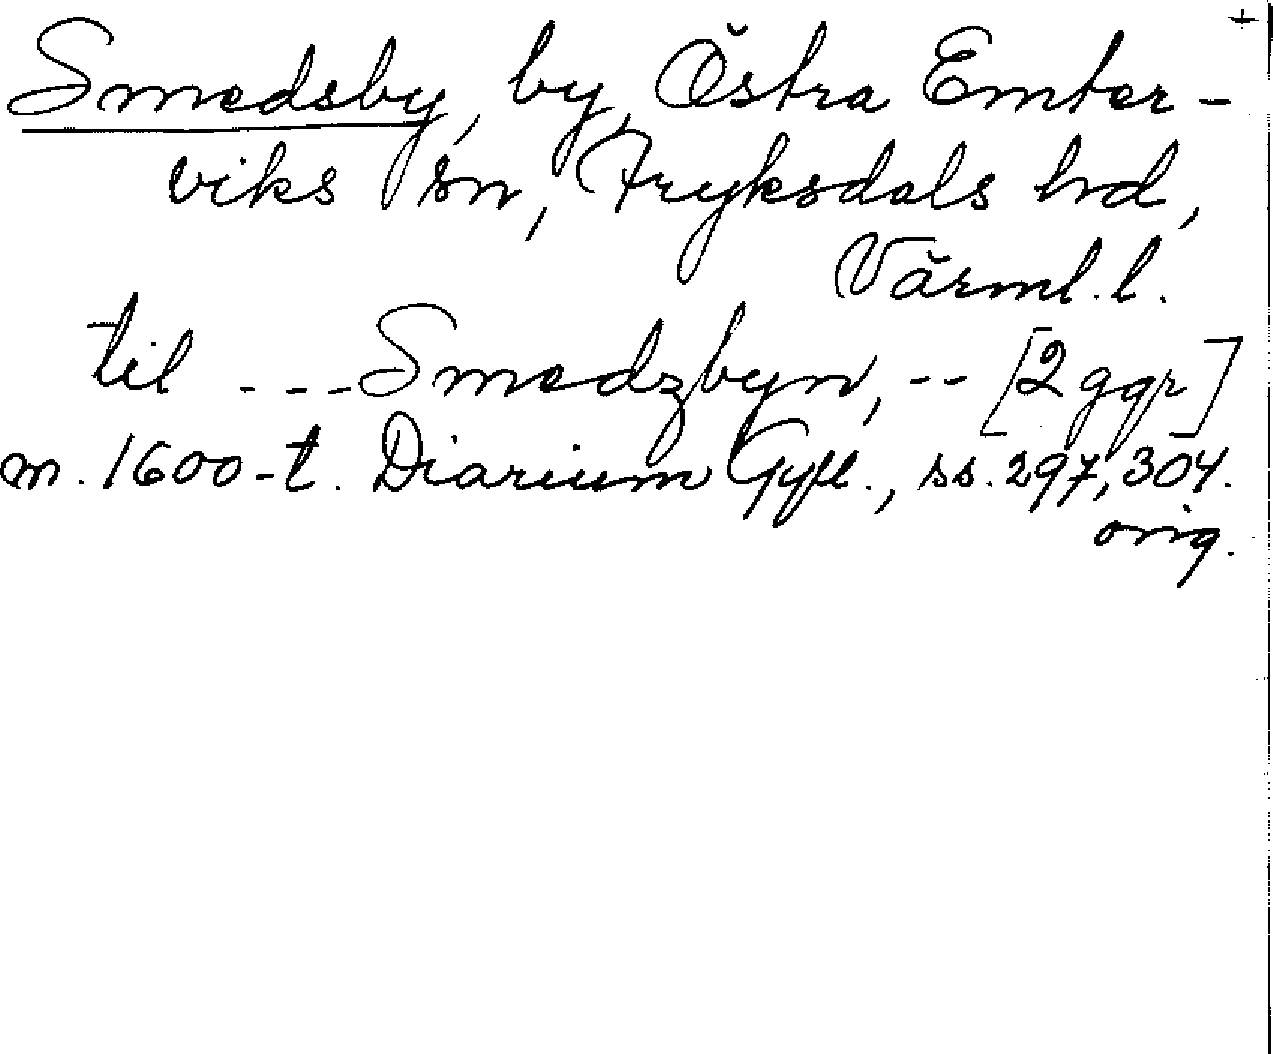 Smedsby, by, Östra Ember-
viks sn, Fryksdals hd,
Värml. l.
til --- Smedzbyn, -- [2 ggr]
m. 1600-t. Diarium Gyll., ss. 297, 304.
orig.